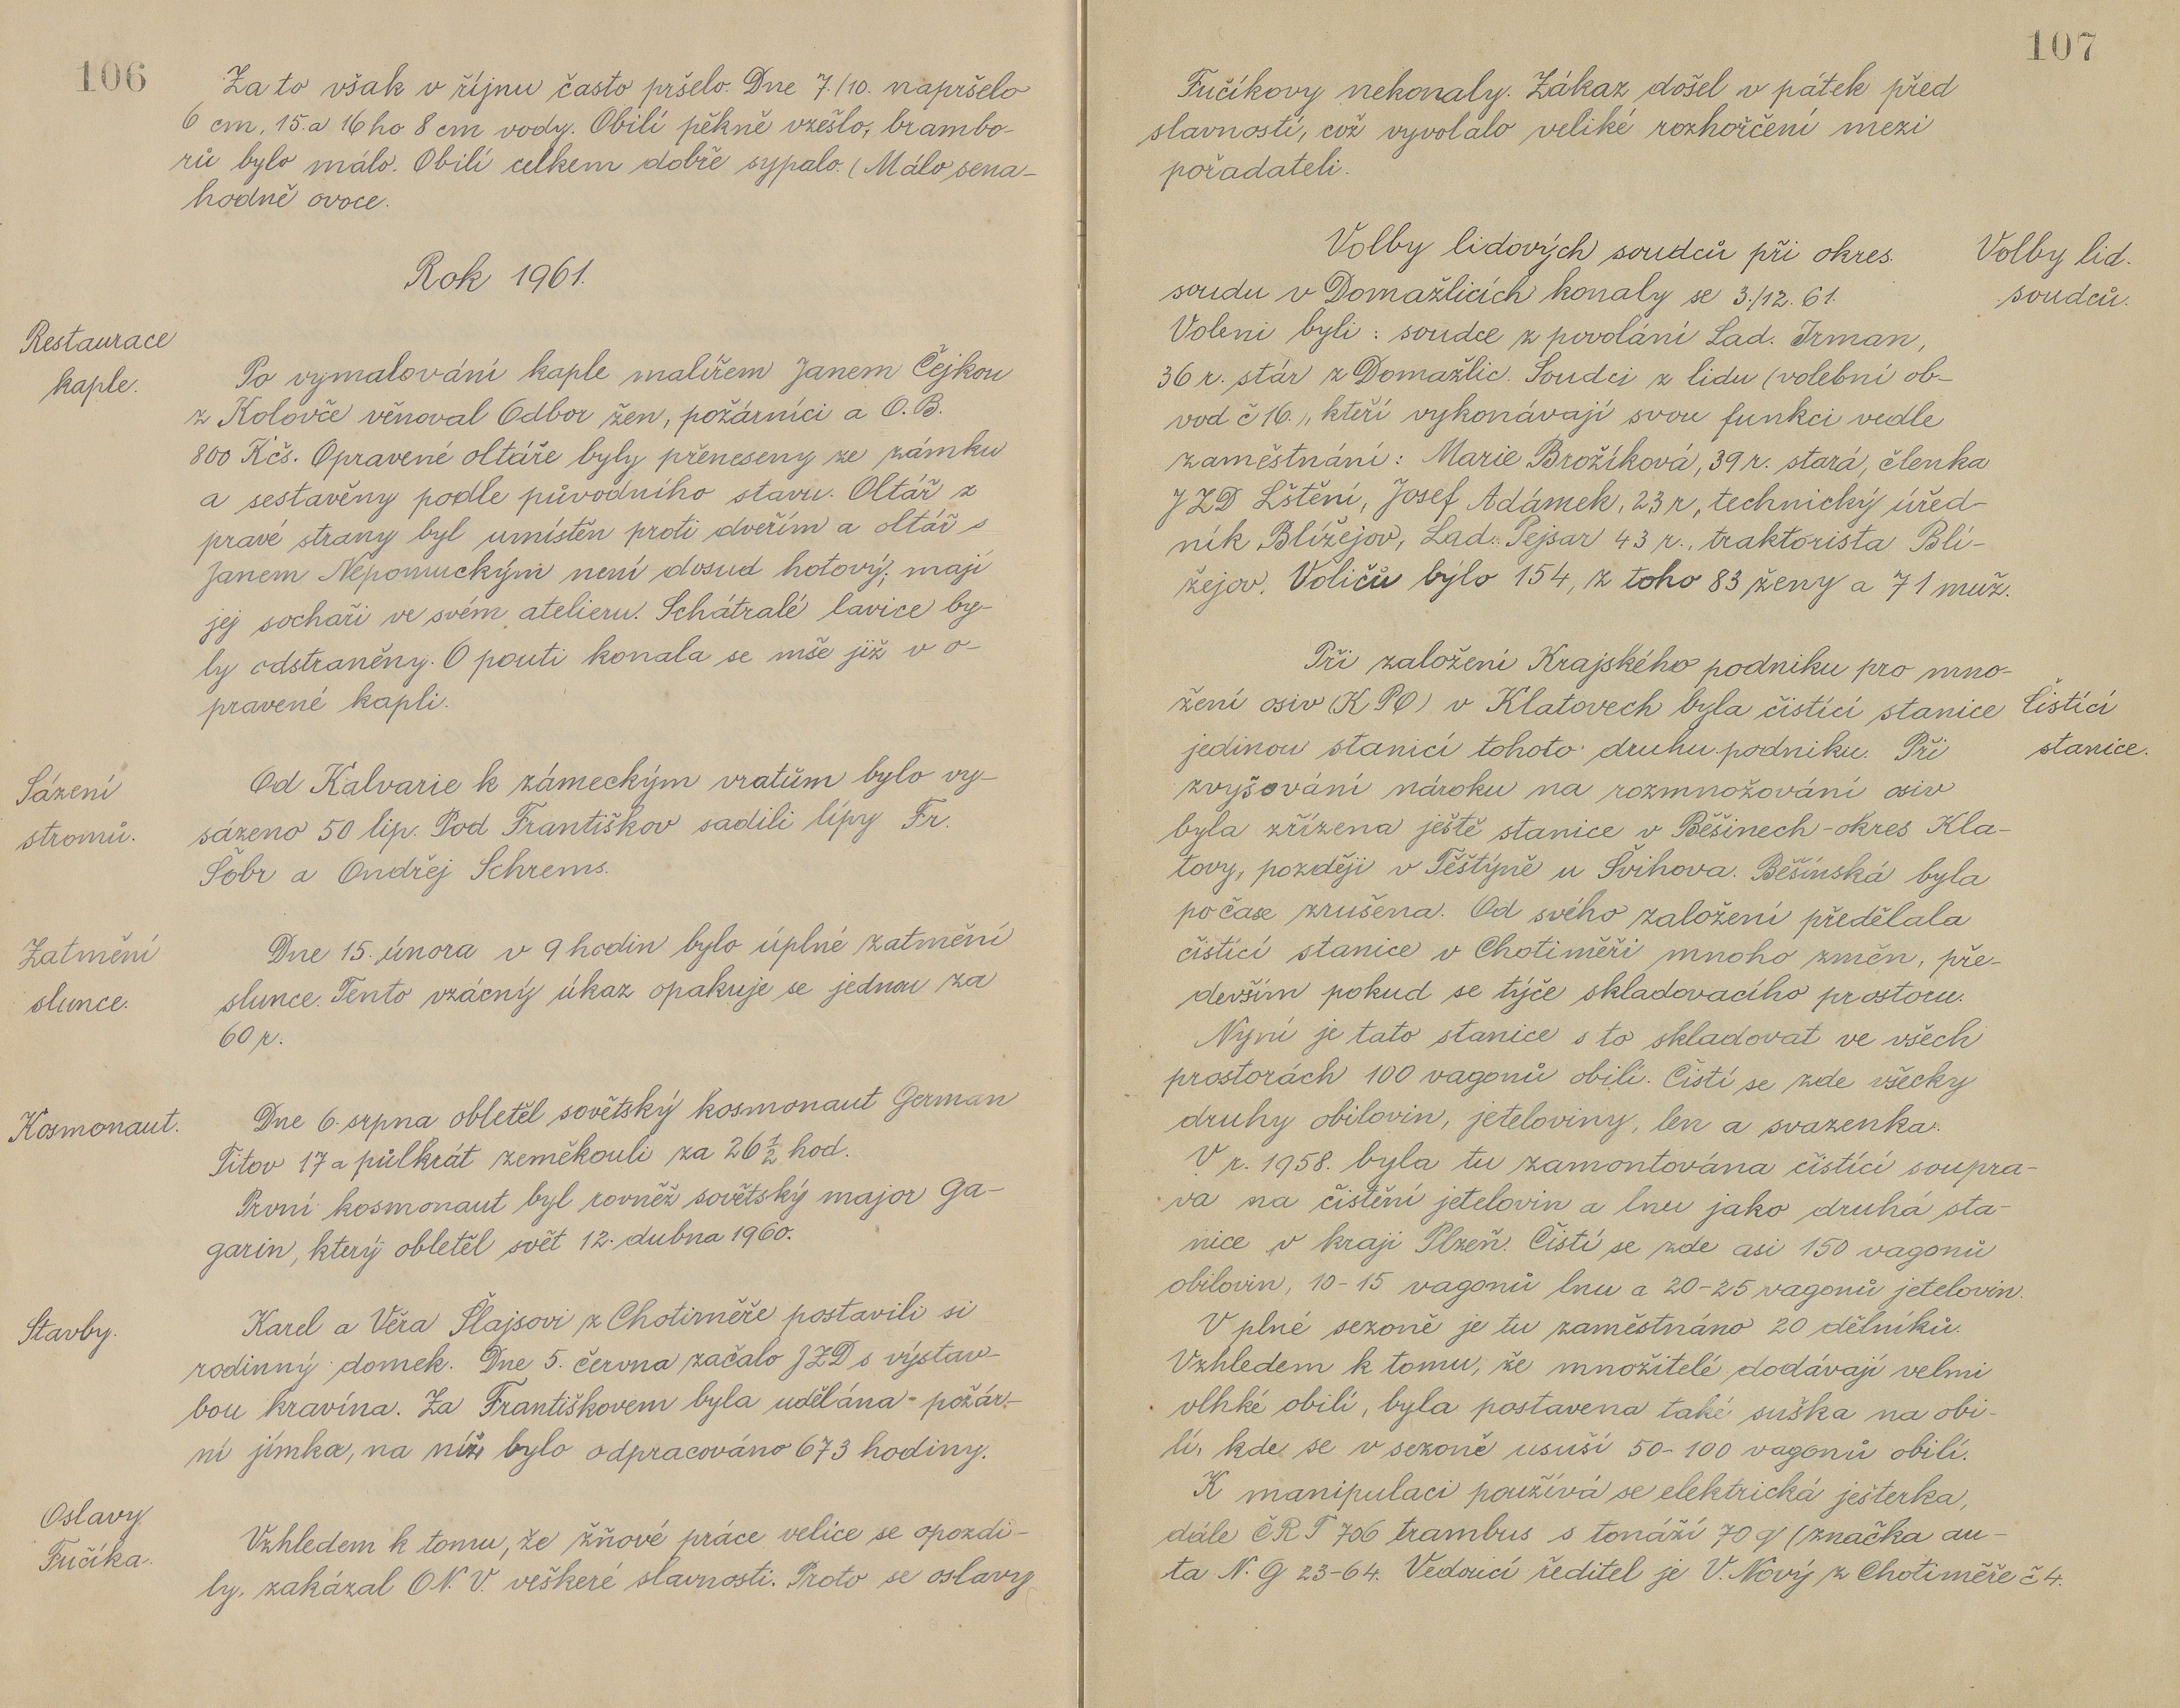 106
Za to však v říjnu často pršelo. Dne 7./10. napršelo
6 cm, 15. a 16 ho 8 cm vody. Obilí pěkně vzešlo, brambo-
rů bylo málo. Obilí celkem dobře sypalo. (Málo sena-
hodně ovoce.
Rok 1961.
Restaurace
kaple.
Po vymalování kaple malířem Janem Čejkou
z Kolovče věnoval Odbor žen, požárníci a O.B.
800 Kčs. Opravené oltáře byly přeneseny ze zámku
a sestavěny podle původního stavu. Oltář z
pravé strany byl umístěn proti dveřím a oltář s
Janem Nepomuckým není dosud hotový; mají
jej sochaři ve svém atelieru. Schátralé lavice by-
ly odstraněny. O pouti konala se mše již v o-
pravené kapli.
Sázení
stromů.
Od Kalvarie k zámeckým vratům bylo vy-
sázeno 50 lip. Pod Františkov sadili lípy Fr.
Šobr a Ondřej Schrems.
Zatmění
slunce.
Dne 15. února v 9 hodin bylo úplné zatmění
slunce. Tento vzácný úkaz opakuje se jednou za
60 r.
Kosmonaut.
Dne 6. srpna obletěl sovětský kosmonaut German
Titov 17 a půlkrát zeměkouli za 26 ½ hod.
První kosmonaut byl rovněž sovětský major Ga-
garin, který obletěl svět 12. dubna 1960.
Stavby.
Karel a Věra Šlajsovi z Chotiměře postavili si
rodinný domek. Dne 5. června začalo JZD s výstav-
bou kravína. Za Františkovem byla udělána požár-
ní jímka, na níž bylo odpracováno 673 hodiny.
Oslavy
Fučíka.
Vzhledem k tomu, že žňové práce velice se opozdi-
ly, zakázal O.N.V. veškeré slavnosti. Proto se oslavy
107
Fučíkovy nekonaly. Zákaz došel v pátek před
slavností, což vyvolalo veliké rozhořčení mezi
pořadateli.
Volby lid.
soudců.
Volby lidových soudců při okres.
soudu v Domažlicích konaly se 3./12. 61.
Voleni byli: soudce z povolání Lad. Irman,
36 r. stár z Domažlic. Soudci z lidu (volební ob-
vod č 16.), kteří vykonávají svou funkci vedle
zaměstnání: Marie Brožíková, 39 r. stará, členka
JZD Lštění, Josef Adámek, 23 r, technický úřed-
ník Blížejov, Lad. Pejsar 43 r., traktorista Blí-
žejov. Voličů bylo 154, z toho 83 ženy a 71 muž.
Čistící
stanice.
Při založení Krajského podniku pro mno-
žení osiv (KPO) v Klatovech byla čistící stanice
jedinou stanicí tohoto druhu podniku. Při
zvyšování nároku na rozmnožování osiv
byla zřízena ještě stanice v Běšinech - okres Kla-
tovy, později v Těštýně u Švihova. Běšínská byla
po čase zrušena. Od svého založení předělala
čistící stanice v Chotiměři mnoho změn, pře-
devším pokud se týče skladovacího prostoru.
Nyní je tato stanice s to skladovat ve všech
prostorách 100 vagonů obilí. Čistí se zde všecky
druhy obilovin, jeteloviny, len a svazenka.
V r. 1958. byla tu zamontována čistící soupra-
va na čistění jetelovin a lnu jako druhá sta-
nice v kraji Plzeň. Čistí se zde asi 150 vagonů
obilovin, 10-15 vagonů lnu a 20-25 vagonů jetelovin.
V plné sezoně je tu zaměstnáno 20 dělníků.
Vzhledem k tomu, že množitelé dodávají velmi
vlhké obilí, byla postavena také suška na obi-
lí, kde se v sezoně usuší 50-100 vagonů obilí.
K manipulaci používá se elektrická ješterka,
dále ČRT 706 trambus s tonáží 70 q (značka au-
ta N. G 23-64. Vedoucí ředitel je V. Nový z Chotiměře č 4.